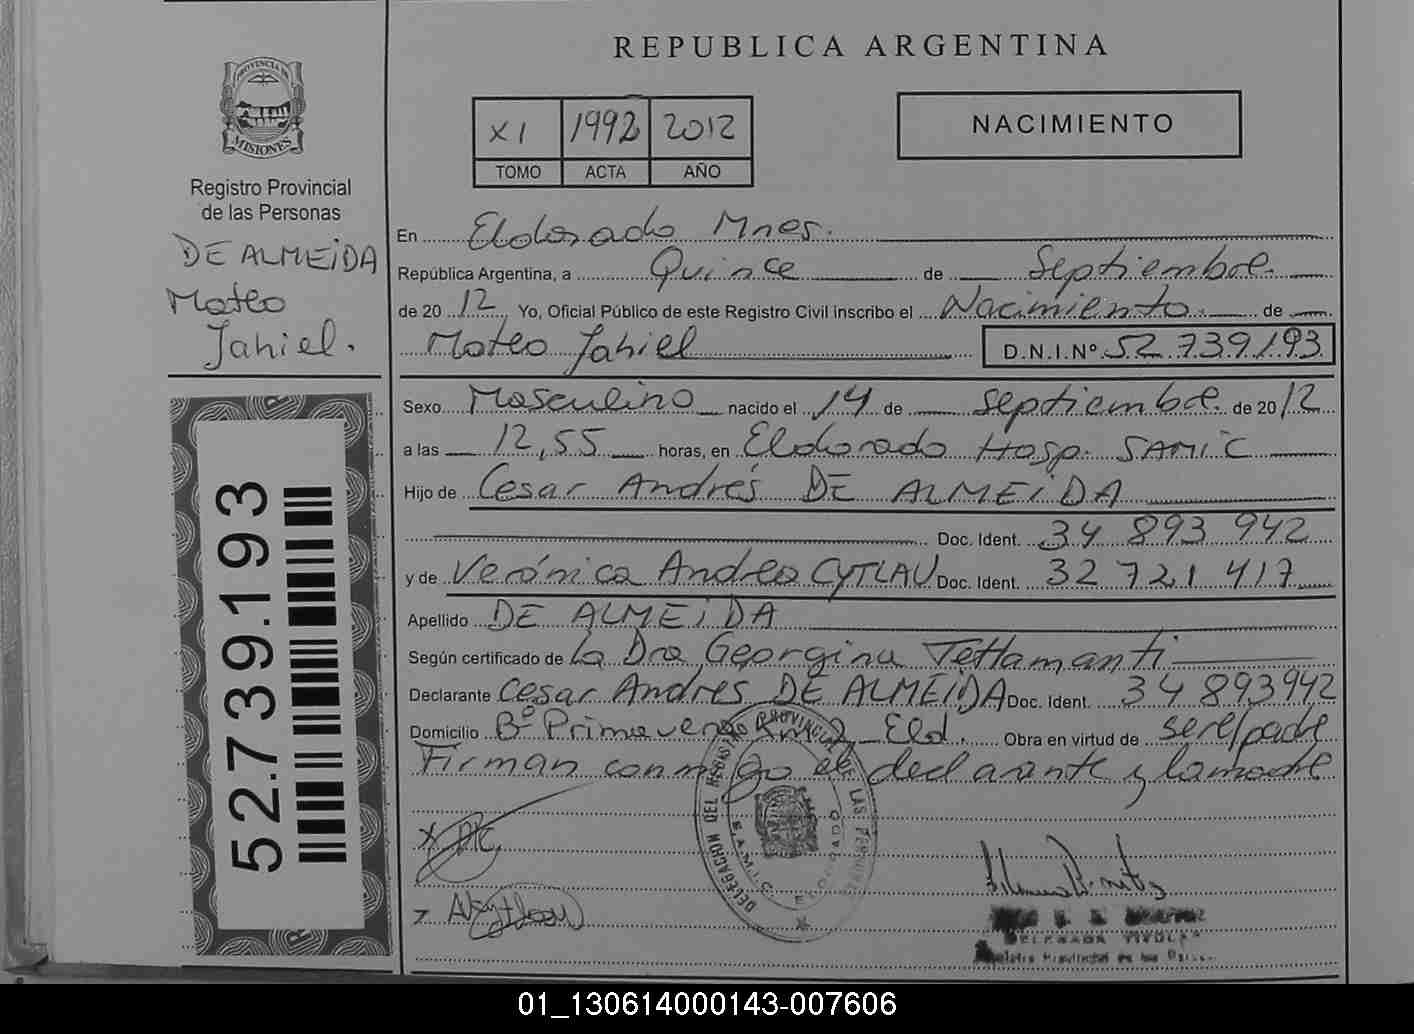 PROVINCIA DE
MISIONES
Registro Provincial
de las Personas
DE ALMEIDA
Mateo
Jahiel.
52.739.193
REPUBLICA ARGENTINA
XI 1992 2012
TOMO ACTA AÑO
NACIMIENTO
En Eldorado Mnes.
República Argentina, a Quince de Septiembre
de 2012 Yo, Oficial Público de este Registro Civil inscribo el Nacimiento de
Mateo Jahiel D.N.I.Nº 52 739193
Sexo Masculino nacido el 14 de septiembre de 2012
a las 12,55 horas, en Eldorado Hosp. SAMIC
Hijo de Cesar Andrés DE ALMEIDA
Doc. Ident. 34 893 942
y de Verónica Andrea CYTLAU Doc. Ident. 32 721 417
Apellido DE ALMEIDA
Según certificado de La Dra Georgina Tettamanti
Declarante Cesar Andrés DE ALMEIDA Doc. Ident. 34 893942
Domicilio Bº Primavera Km 2 Eld. Obra en virtud de ser el padre
Firman conmigo el declarante y la madre
DELEGACION DEL REGISTRO PROVINCIAL DE LAS PERSONAS
S.A.M.I.C. ELDORADO
DELEGADA TITULAR
01_130614000143-007606